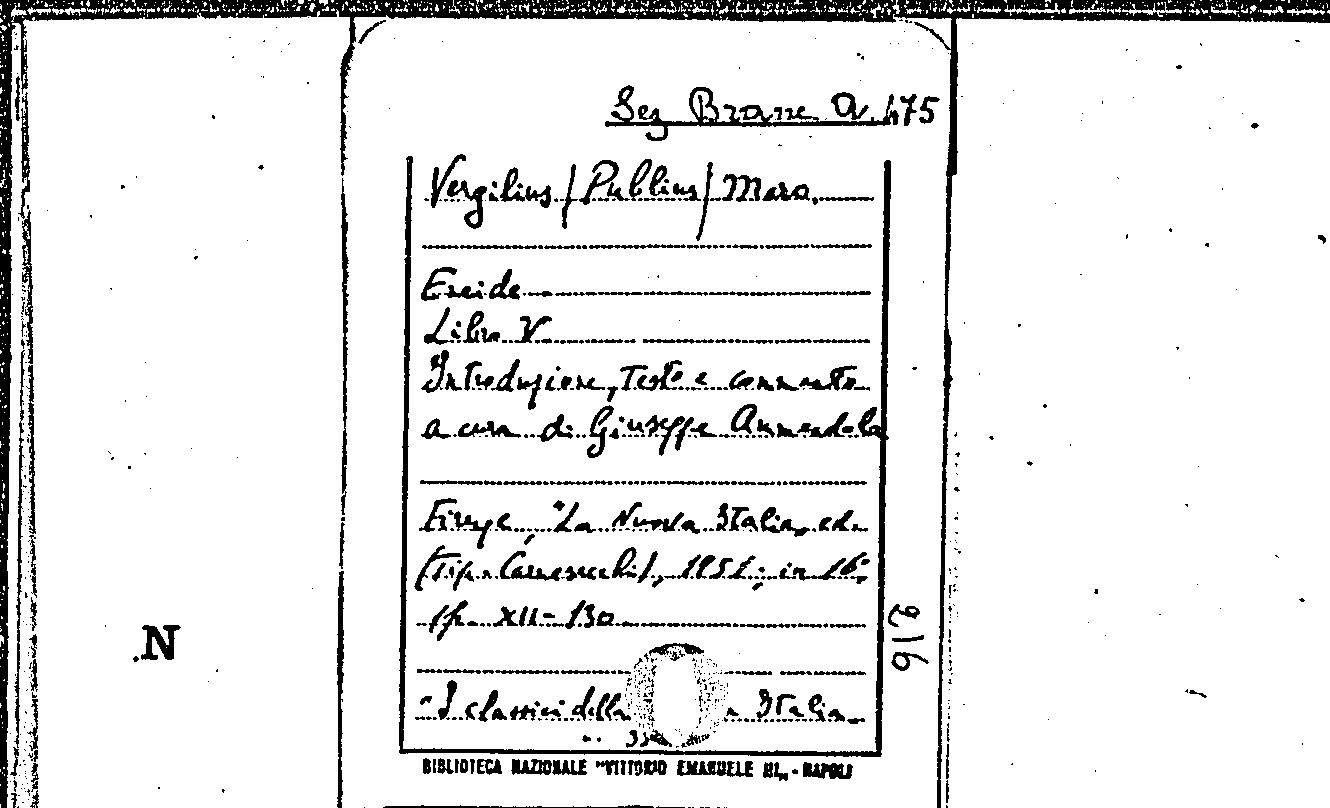 Sez Branc. A. 475
Vergilius / Publius / Maro.
Eneide
Libro V
Introduzione, Testo e commento
a cura di Giuseppe Ammendola
Firenze, "La Nuova Italia, ed.
(Tip. Carnesecchi), 1951; in 16°,
pp. XII-130
"I classici della Italia
n. 
BIBLIOTECA NAZIONALE "VITTORIO EMANUELE III„ - NAPOLI
N